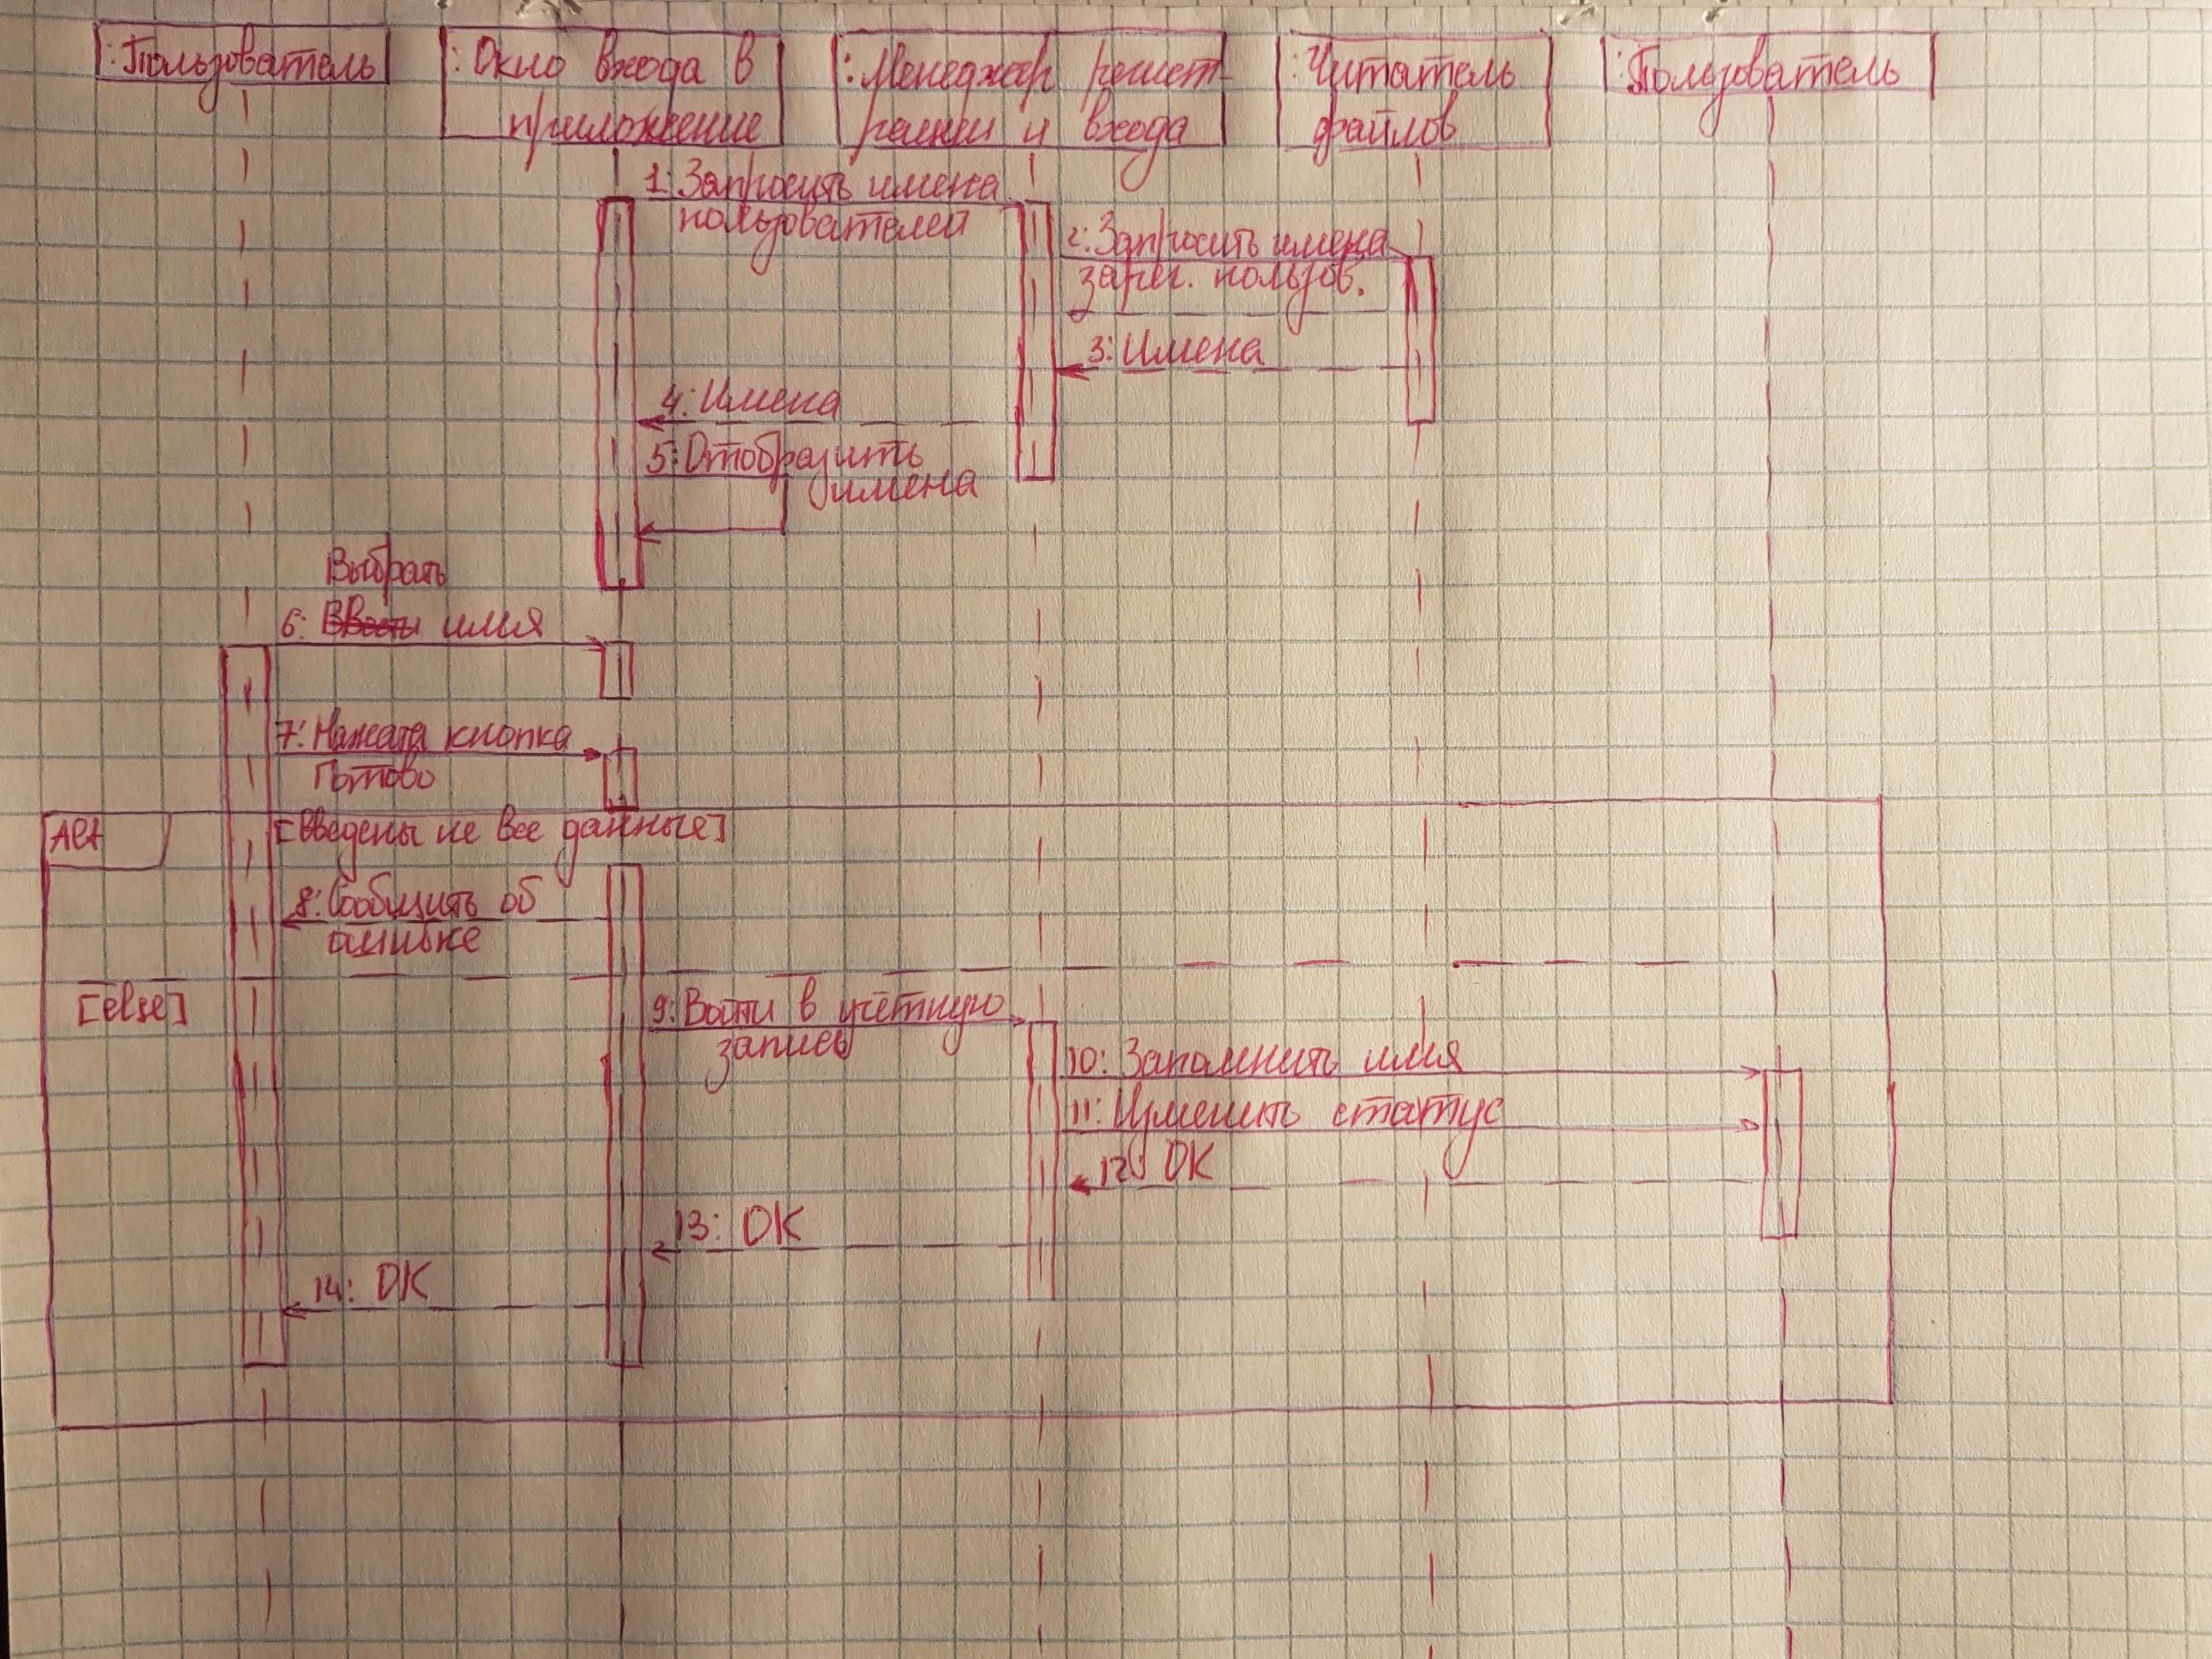 :Пользователь
:Окно входа в
приложение
:Менеджер регист-
рации и входа
:Читатель
файлов
:Пользователь
1: Запросить имена
пользователей
2: Запросить имена
зарег. пользов.
3: Имена
4: Имена
5: Отобразить
имена
Выбрать
6: Ввести имя
7: Нажата кнопка
Готово
Alt
[Введены не все данные]
8: Сообщить об
ошибке
[else]
9: Войти в учётную
запись
10: Запомнить имя
11: Изменить статус
12: ОК
13: ОК
14: ОК